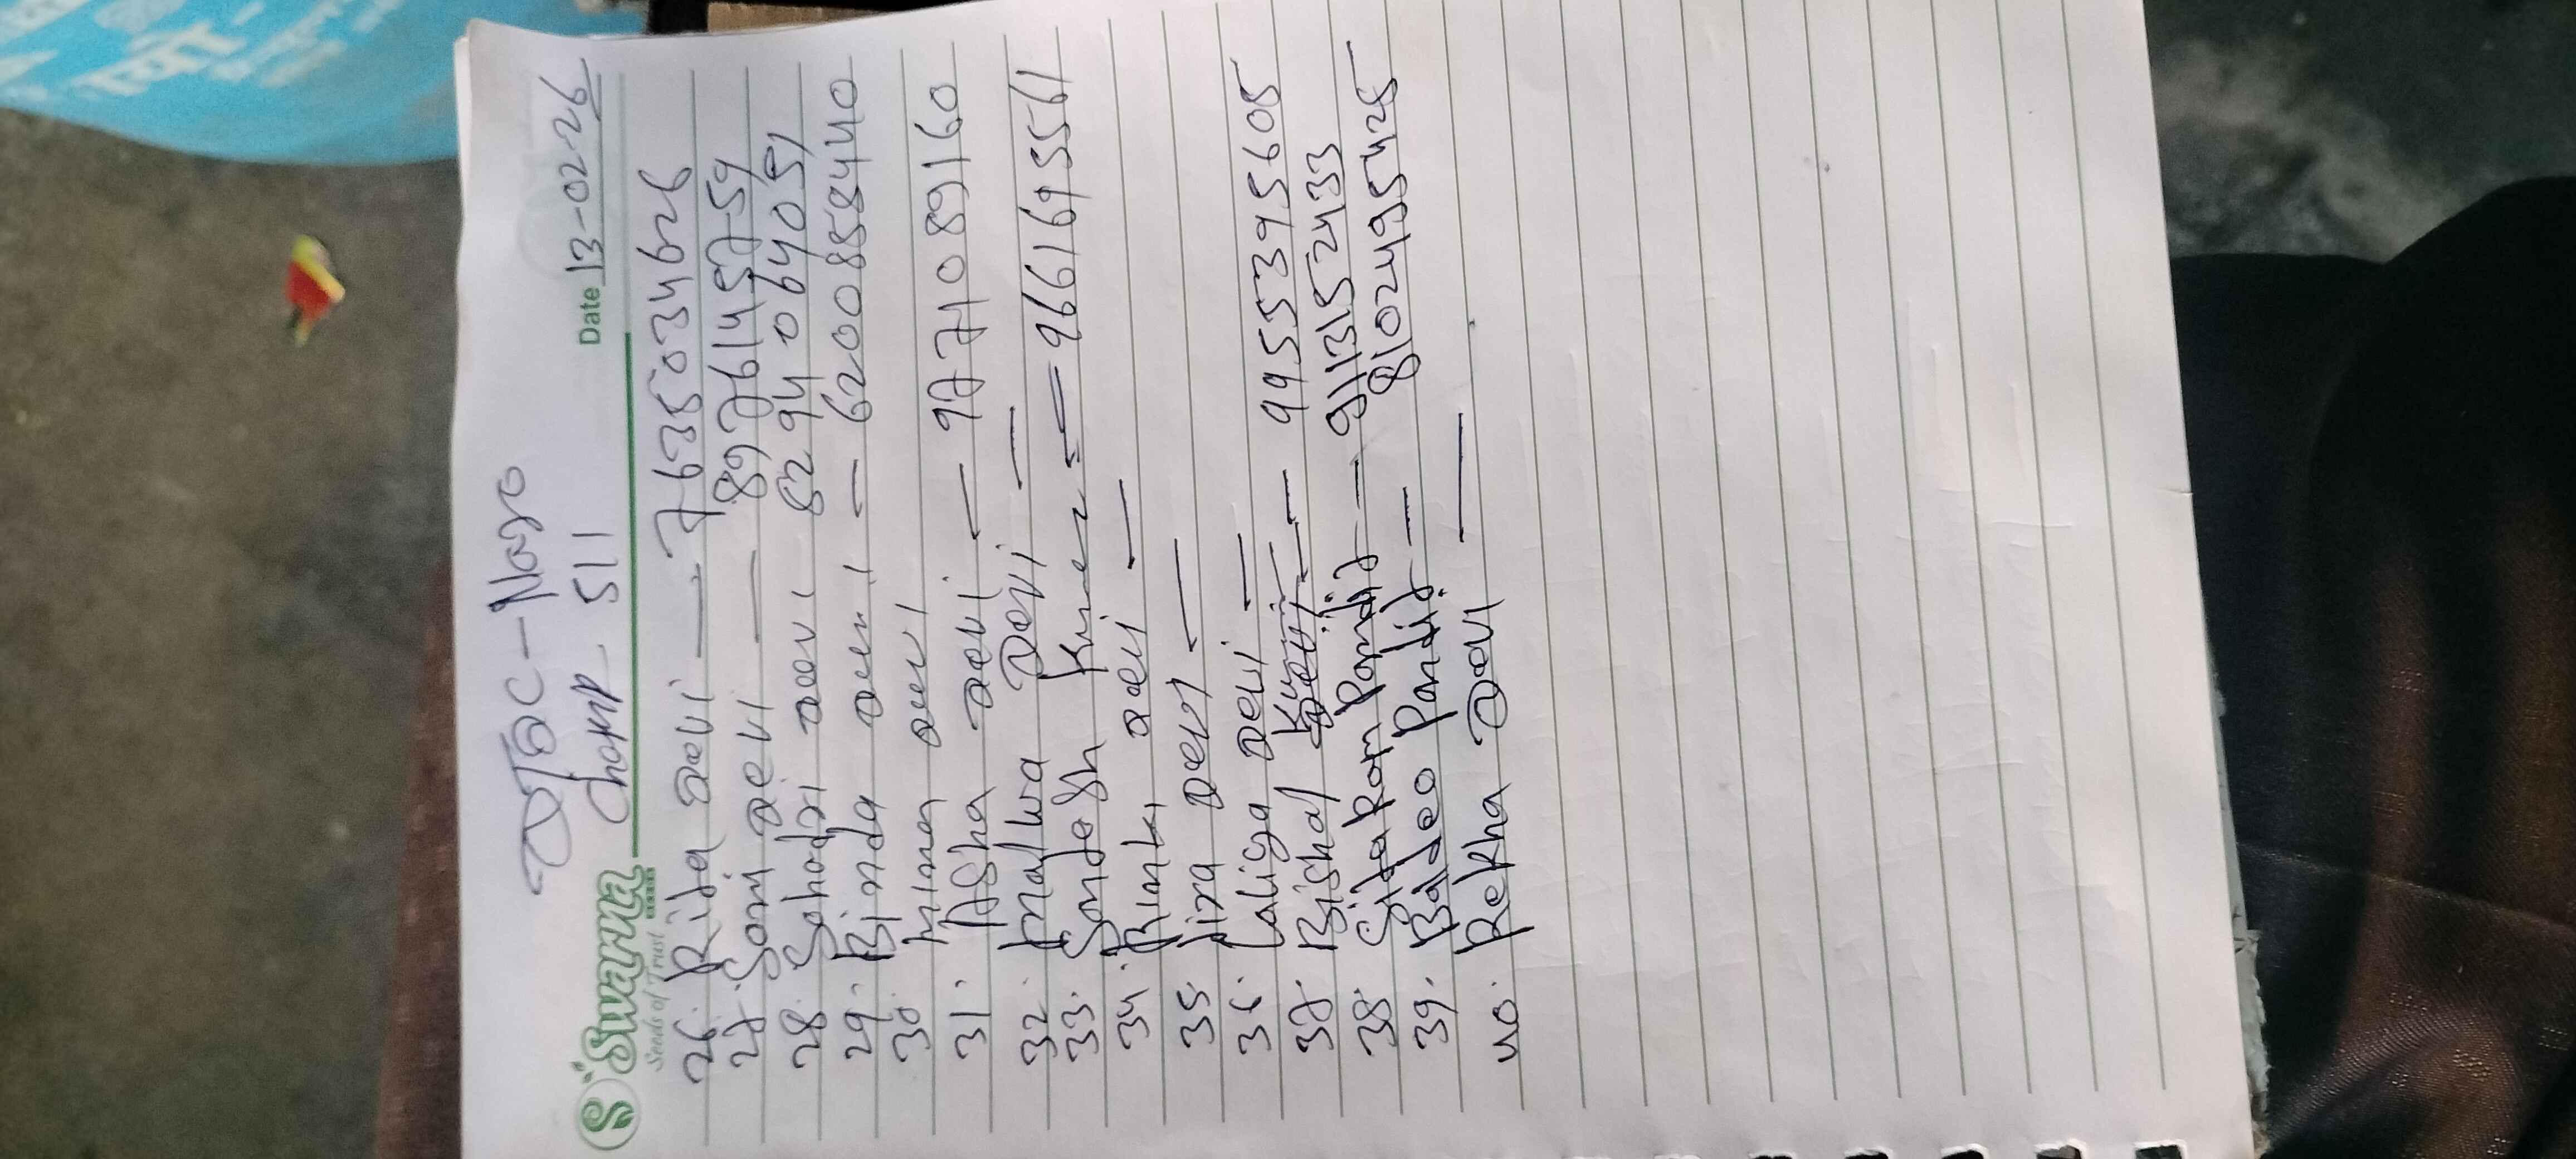 Swarna
Seeds of Trust
Date 13-02-26
26. Rita Devi — 7635034626
27. Soni Devi — 8976145759
28. Sahodri Devi 8294064051
29. Binda Devi — 6200858440
30. Mina Devi
31. Asha Devi — 9771089160
32. Malwa Devi —
33. Sandesh — 9661695561
34. Rinki Devi —
35. Jira Devi —
36. Laliya Devi —
37. Bishal Kumar — 9955395605
38. Sita Ram Pandit — 9113152433
39. Baldeo Pandit — 8102495425
40. Rekha Devi —